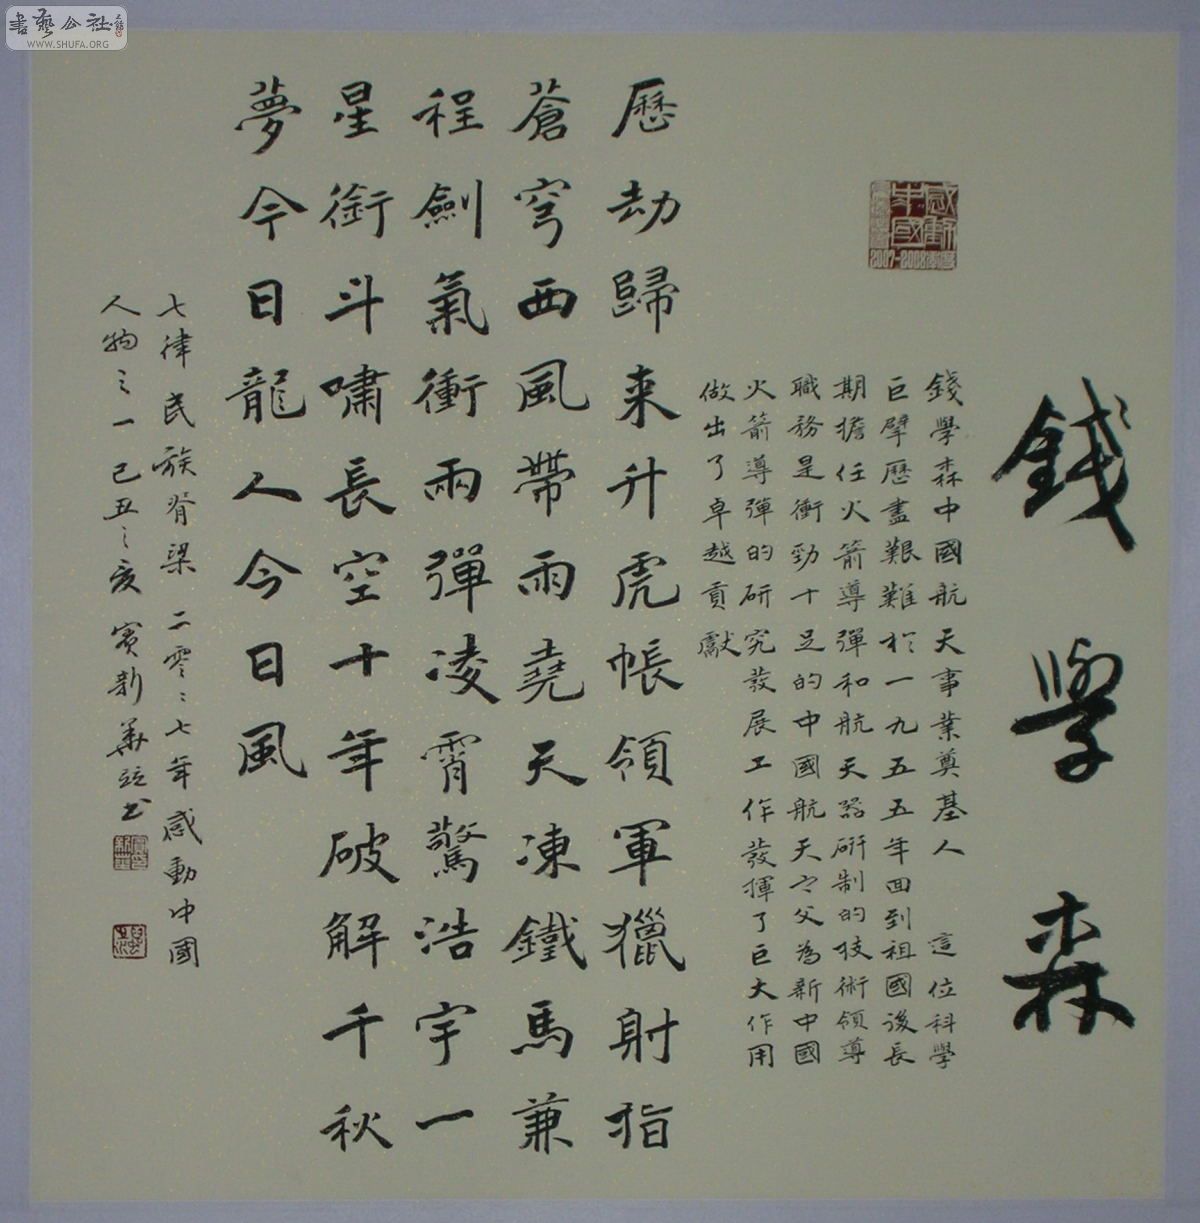 錢學森
感動中國
2007-2008
錢學森中國航天事業奠基人 這位科學
巨擘歷盡艱難於一九五五年回到祖國後長
期擔任火箭導彈和航天器研制的技術領導
職務是衝勁十足的中國航天之父為新中國
火箭導彈的研究發展工作發揮了巨大作用
做出了卓越貢獻
歷劫歸来升虎帳領軍獵射指
蒼穹西風帶雨堯天凍鐵馬兼
程劍氣衝兩彈凌霄驚浩宇一
星銜斗嘯長空十年破解千秋
夢今日龍人今日風
七律民族脊梁二零零七年感動中國
人物之一己丑之亥賓新華並书
書藝公社
WWW.SHUFA.ORG